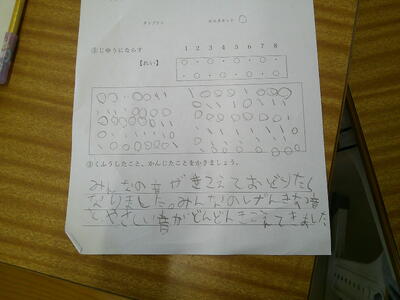 タンブリン カスタネット ○
②じゆうにならす
1 2 3 4 5 6 7 8
【れい】
③くふうしたこと、かんじたことをかきましょう。
みんなの音がきこえておどりたく
なりました。みんなの
で、やさしい音がどんどんきこえてきました